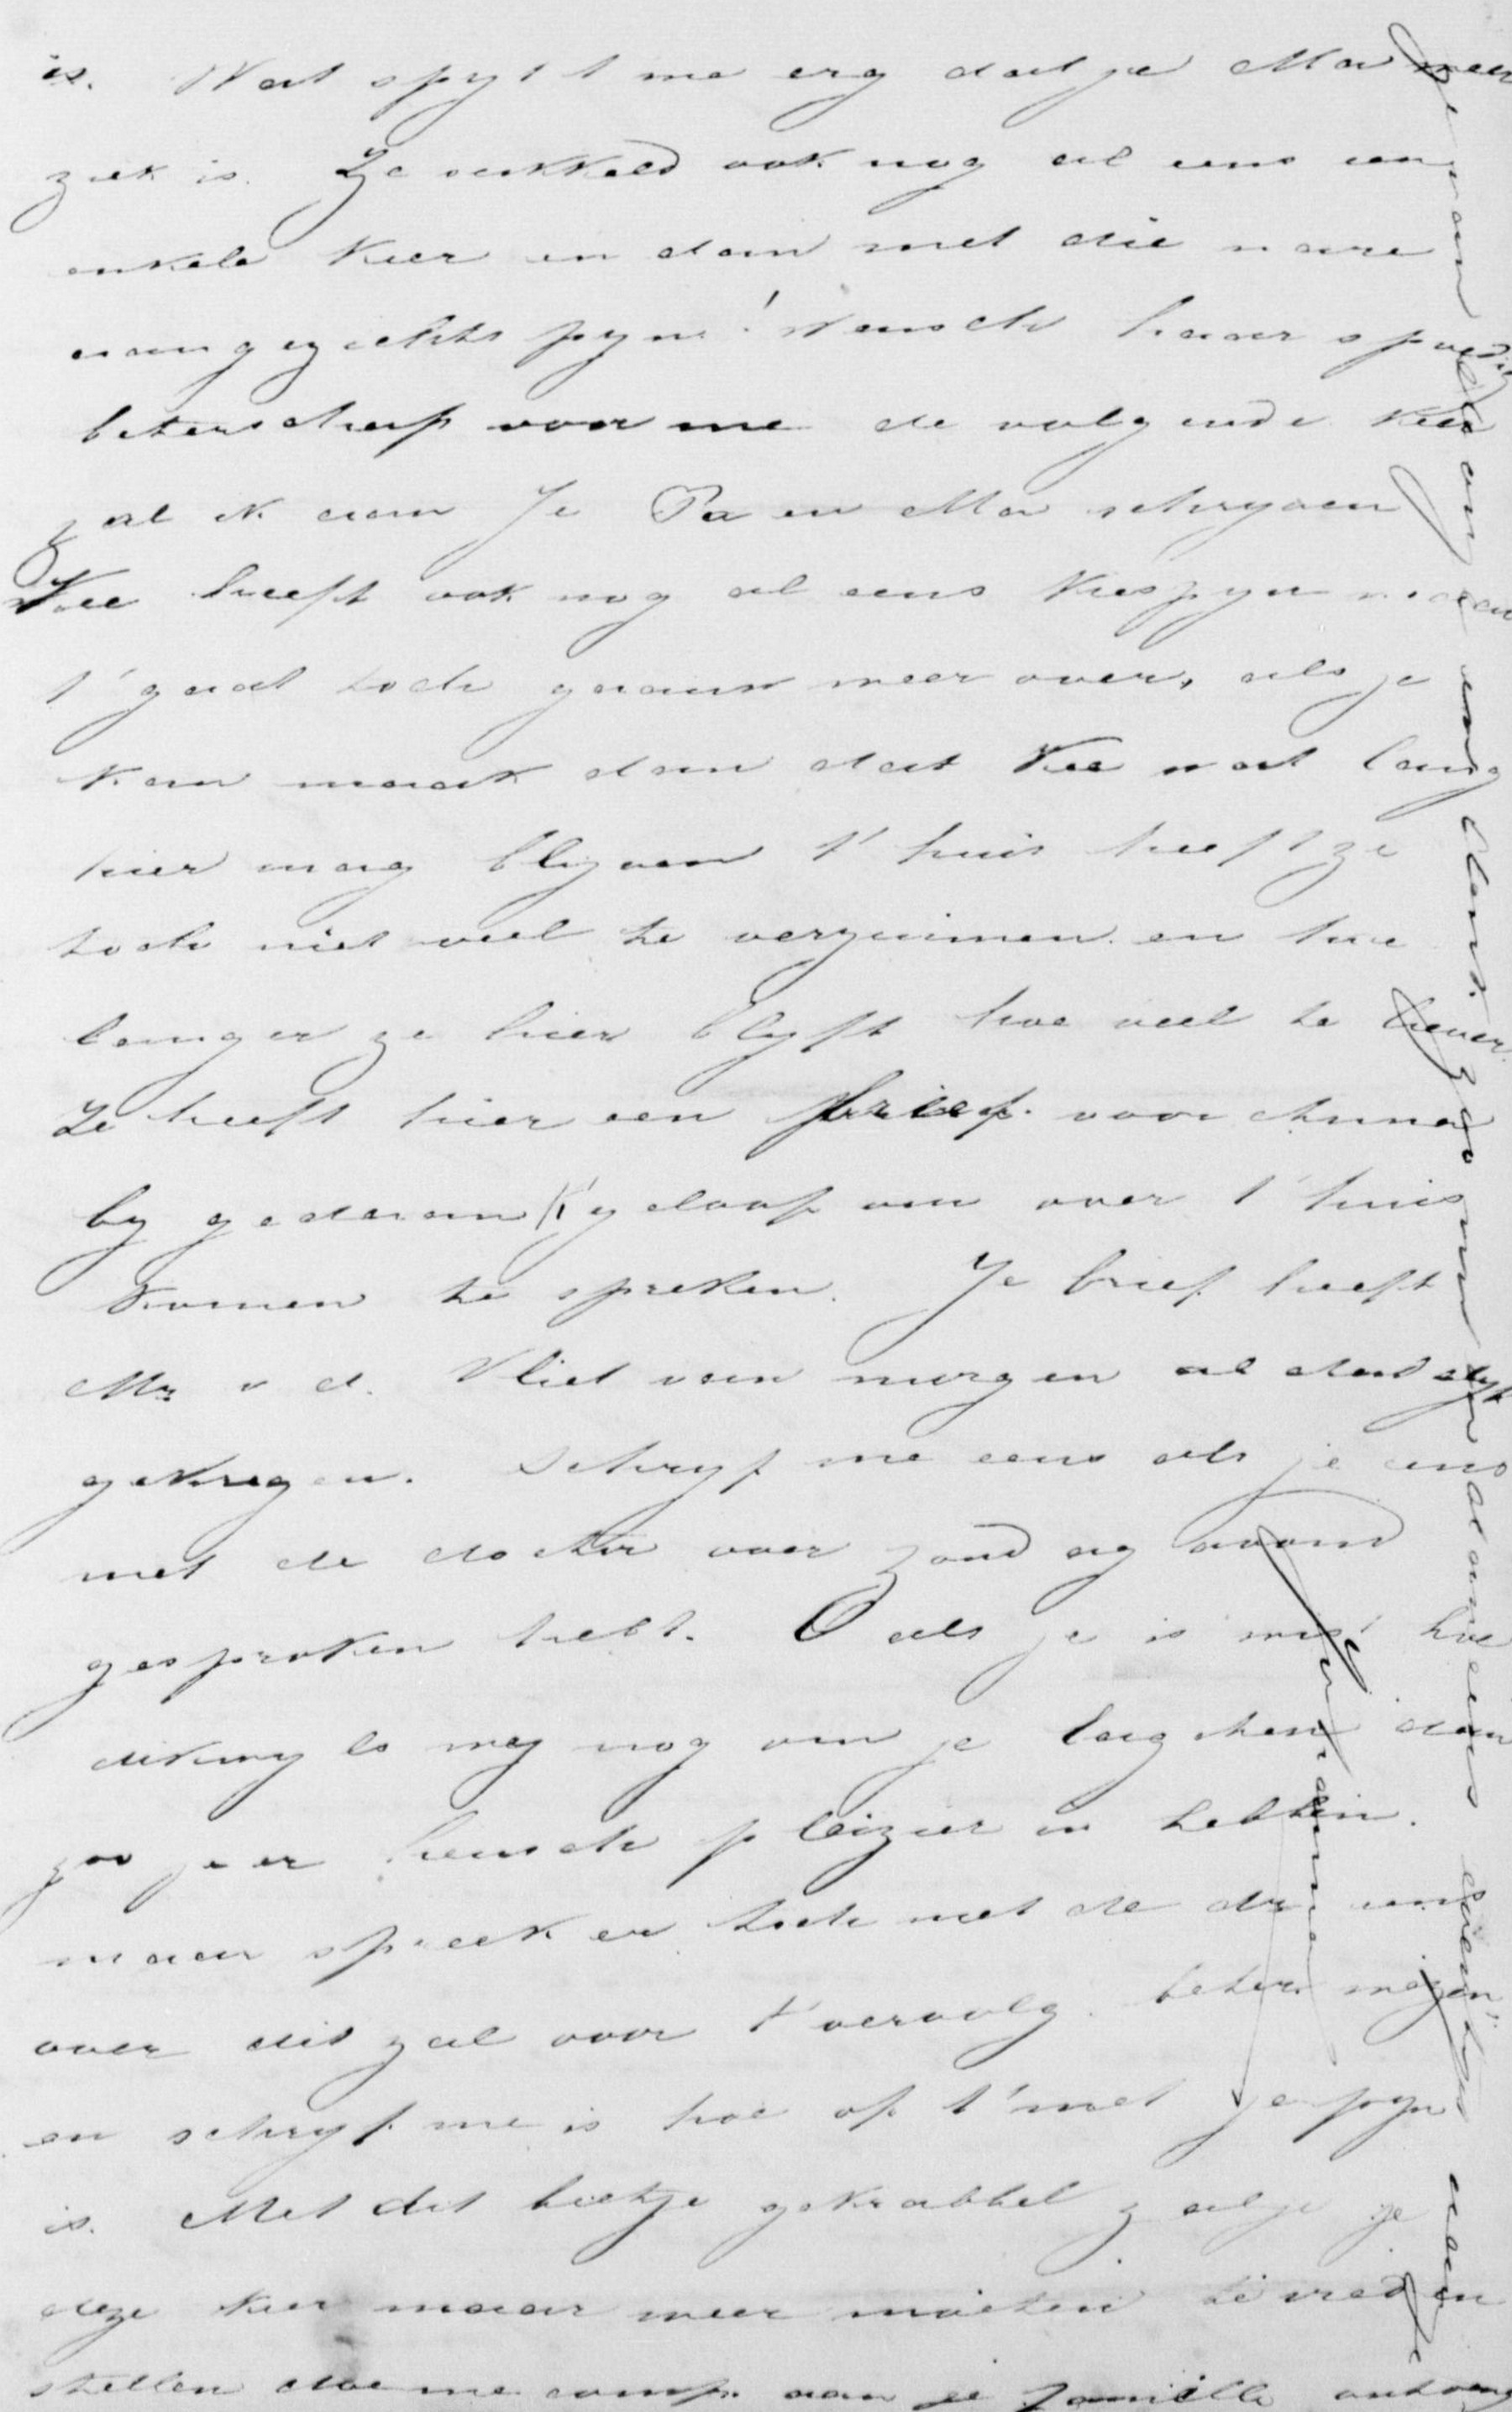 is. Wat spyt t me erg dat je Ma weer
ziek is. Ze sukkeld ook nog al eens een
enkele keer en dan met die nare
aangezichts pyn! Wensch haar spoedig
beterschap voor me de volgende keer
zal ik aan Je Pa en Ma schryven
Kee heeft ook nog al eens kiespyn maar
t' gaat toch gaauw weer over, als je
kan maak dan dat Kee wat lang
hier mag blyven t' huis heeft ze
toch niet veel te verzuimen en hoe
langer ze hier blyft hoe veel te liever
Ze heeft hier een brief voor Anna
by gedaan k' geloof om over t' huis
komen te spreken. Je brief heeft
Mr v d. Vliet van morgen al dadelyk
gekregen. Schryf me eens als je eens
met de docter over zondag avond
gesproken hebt. O als je is wist hoe
dikwyls wy nog om je lagchen dan
zou je er heusch pleizier in hebben.
maar spreek er toch met de dr eens
over dit zal voor t' vervolg beter mogen
en schryf me is hoe of t' met je pyn
is. Met dit beetje gekrabbel zal je je
deze keer maar weer moeten te vreden
stellen doe me comp. aan je familie ontvang